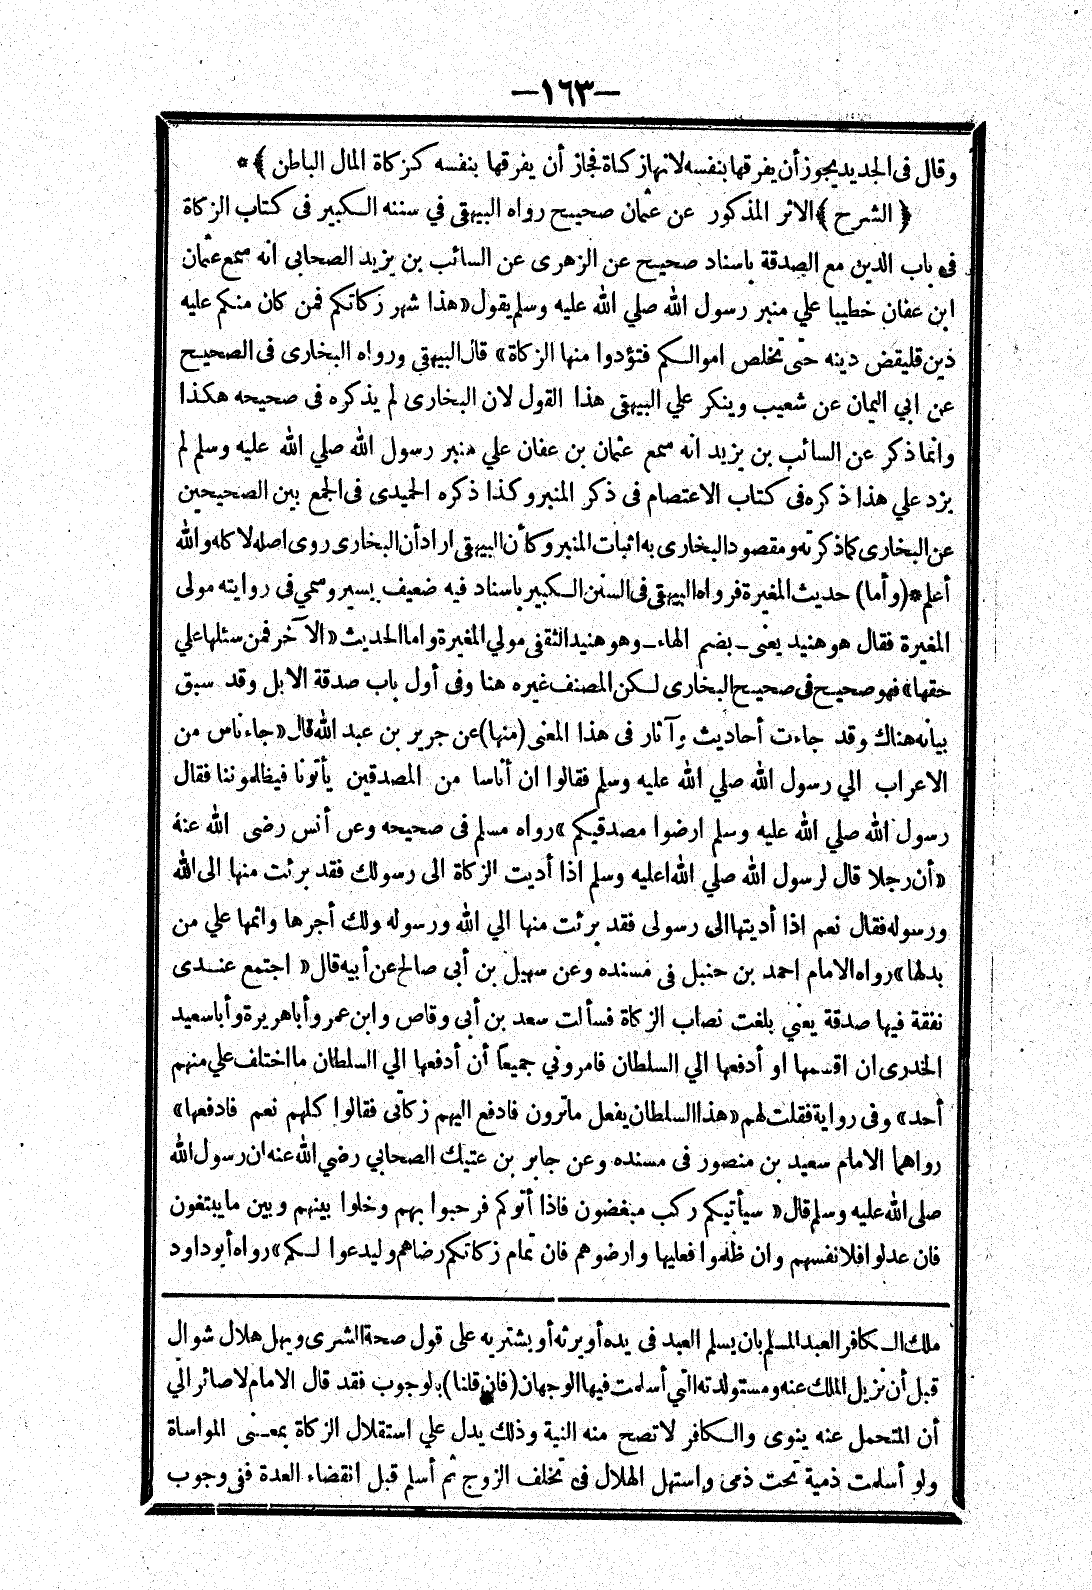 —١٦٣—
وقال فى الجديد يجوز أن يفرقها بنفسه لانها زكاة فجاز أن يفرقها بنفسه كزكاة المال الباطن ﴾*
﴿ الشرح ﴾ الاثر المذكور عن عثمان صحيح رواه البيهقى في سننه الكبير فى كتاب الزكاة
فى باب الدين مع الصدقة باسناد صحيح عن الزهرى عن السائب بن يزيد الصحابى انه سمع عثمان
ابن عفان خطيبا علي منبر رسول الله صلي الله عليه وسلم يقول «هذا شهر زكاتكم فمن كان منكم عليه
دين فليقض دينه حتى تخلص اموالكم فتؤدوا منها الزكاة» قال البيهقى ورواه البخارى فى الصحيح
عن ابي اليمان عن شعيب وينكر علي البيهقى هذا القول لان البخارى لم يذكره فى صحيحه هكذا
وانما ذكر عن السائب بن يزيد انه سمع عثمان بن عفان علي منبر رسول الله صلي الله عليه وسلم لم
يزد علي هذا ذكره فى كتاب الاعتصام فى ذكر المنبر وكذا ذكره الحميدى فى الجمع بين الصحيحين
عن البخارى كما ذكرته ومقصود البخارى به اثبات المنبر وكأن البيهقى اراد أن البخارى روى اصله لا كله والله
أعلم * (وأما) حديث المغيرة فرواه البيهقى فى السنن الكبير باسناد فيه ضعيف يسير وسمي فى روايته مولى
المغيرة فقال هو هنيد يعنى ـ بضم الهاء ـ وهو هنيد الثقفى مولي المغيرة واما الحديث «الآخر فمن سئلها علي
حقها» فهو صحيح فى صحيح البخارى لكن المصنف غيره هنا وفى أول باب صدقة الابل وقد سبق
بيانه هناك وقد جاءت أحاديث وآثار فى هذا المعنى (منها) عن جرير بن عبد الله قال «جاء ناس من
الاعراب الي رسول الله صلي الله عليه وسلم فقالوا ان أناسا من المصدقين يأتونا فيظلموننا فقال
رسول الله صلي الله عليه وسلم ارضوا مصدقيكم» رواه مسلم فى صحيحه وعن أنس رضى الله عنه
«أن رجلا قال لرسول الله صلي الله عليه وسلم اذا أديت الزكاة الى رسولك فقد برئت منها الى الله
ورسوله فقال نعم اذا أديتها الى رسولى فقد برئت منها الي الله ورسوله ولك أجرها واثمها علي من
بدلها» رواه الامام احمد بن حنبل فى مسنده وعن سهيل بن أبى صالح عن أبيه قال « اجتمع عندى
نفقة فيها صدقة يعني بلغت نصاب الزكاة فسألت سعد بن أبى وقاص وابن عمر وأبا هريرة وأبا سعيد
الخدرى ان اقسمها او أدفعها الي السلطان فامروني جميعا أن أدفعها الي السلطان ما اختلف علي منهم
أحد» وفى رواية فقلت لهم «هذا السلطان يفعل ما ترون فادفع اليهم زكاتى فقالوا كلهم نعم فادفعها»
رواهما الامام سعيد بن منصور فى مسنده وعن جابر بن عتيك الصحابي رضي الله عنه ان رسول الله
صلى الله عليه وسلم قال « سيأتيكم ركب مبغضون فاذا أتوكم فرحبوا بهم وخلوا بينهم وبين ما يبتغون
فان عدلوا فلانفسهم وان ظلموا فعليها وارضوهم فان تمام زكاتكم رضاهم وليدعوا لكم» رواه أبو داود
ملك الكافر العبد المسلم بان يسلم العبد فى يده أو يرثه أو يشتريه على قول صحة الشرى ويهل هلال شوال
قبل أن نزيل الملك عنه ومستولدته التي أسلمت فيها الوجهان (فان قلنا) بالوجوب فقد قال الامام لا صائر الي
أن المتحمل عنه ينوى والكافر لا تصح منه النية وذلك يدل علي استقلال الزكاة بمعنى المواساة
ولو أسلمت ذمية تحت ذمى واستهل الهلال فى تخلف الزوج ثم أسلم قبل انقضاء العدة ففى وجوب